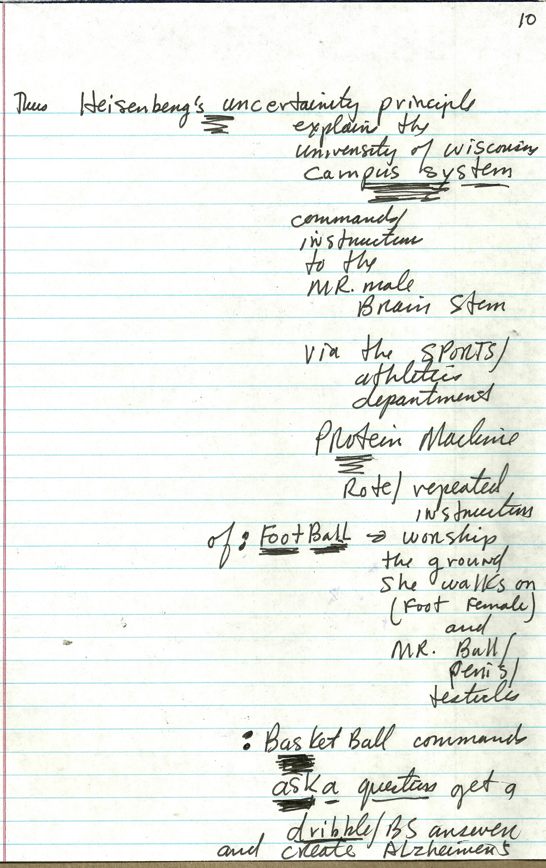 10
Thus Heisenberg's uncertainity principle
explain the
university of wisconsin
campus system
commands/
instruction
to the
MR. male
Brain Stem
via the SPORTS/
athletics
department
Protein Machine
Rote/repeated
instruction
of: FootBall → worship
the ground
She walks on
(Foot Female)
and
MR. Ball/
penis/
testicles
: BasketBall command
aska question get a
dribble/BS answer
and creates Alzheimer's